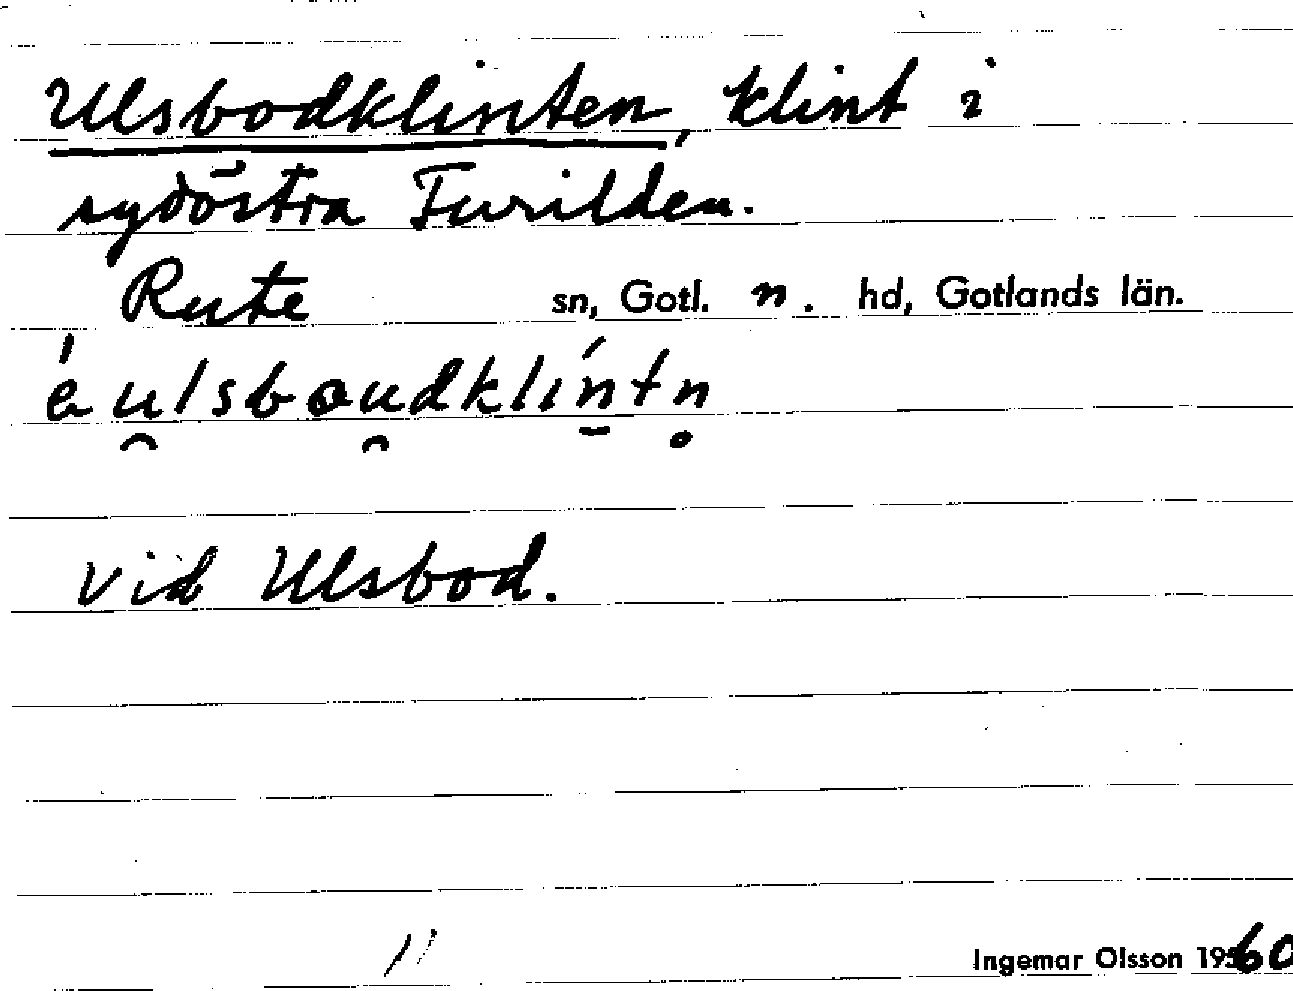 Ulsbodklinten, klint i
sydöstra Furilden.
Rute sn, Gotl. n. hd, Gotlands län.
éu̯lsbou̯dklín̠tn̥
vid Ulsbod.
Ingemar Olsson 1960